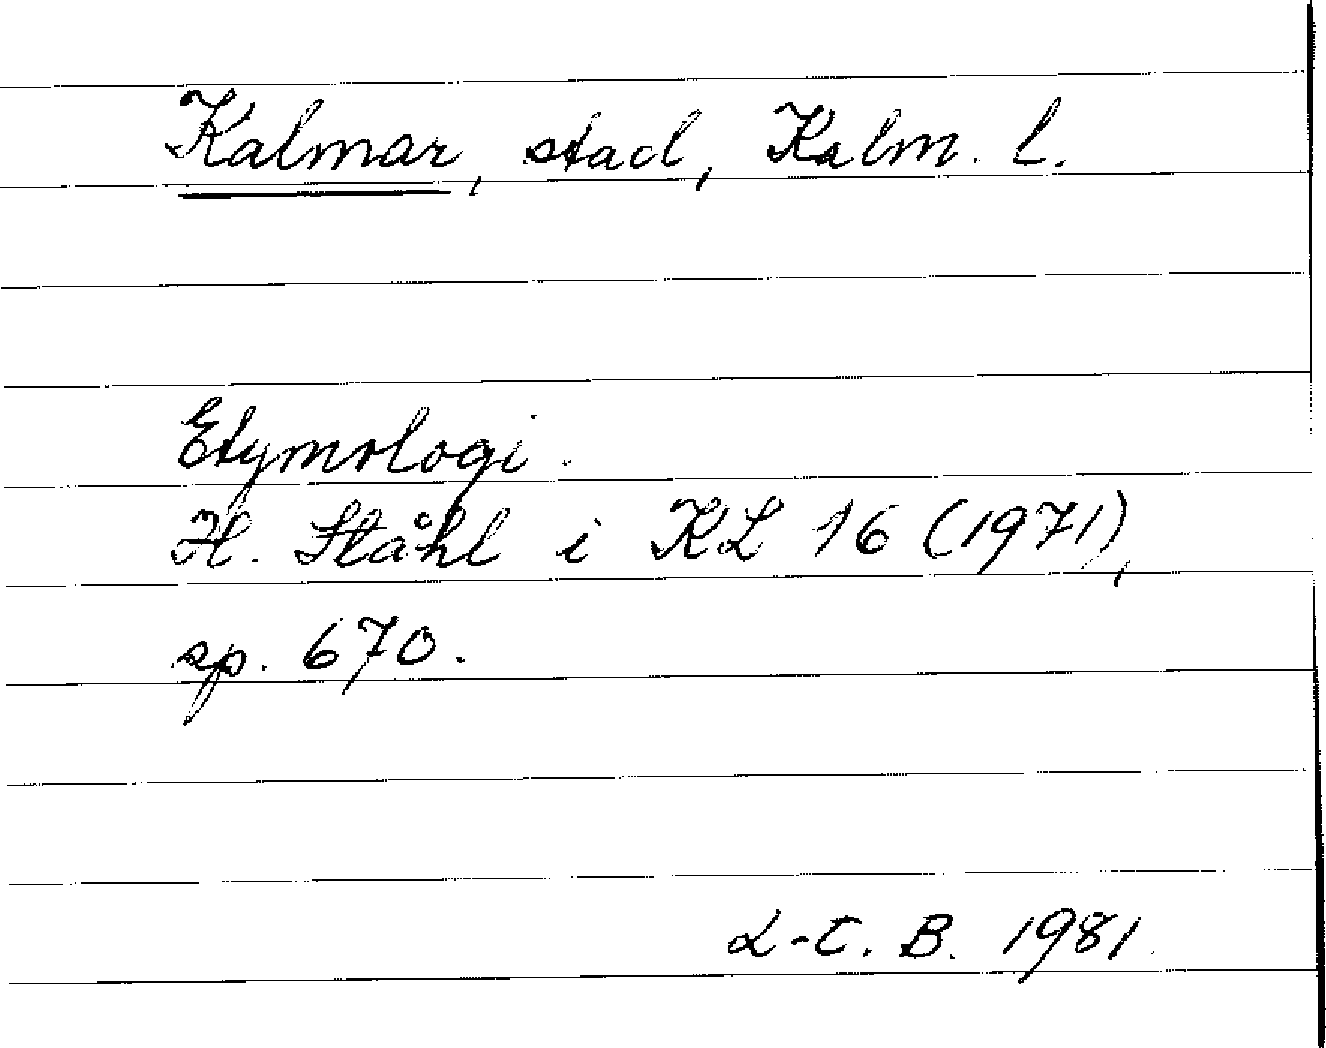 Kalmar, stad, Kalm. l.
Etymologi.
H. Ståhl i KL 16 (1971),
sp. 670.
L-C. B. 1981.